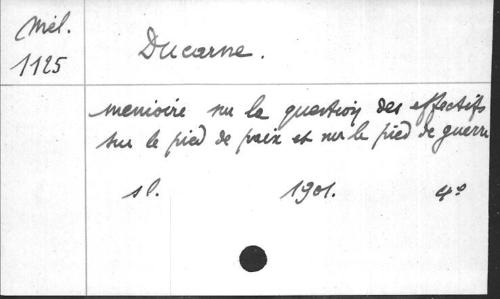 Mél.
1125
Ducarne.
memioire sur la question des effectifs
sur le pied de paix et sur le pied de guerre
sl. 1901. 4°